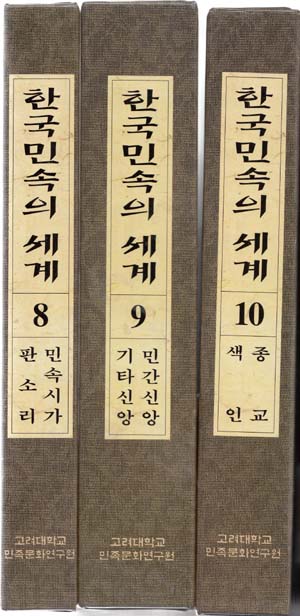 한국민속의 세계
8
민속시가
판소리
고려대학교
민족문화연구원
한국민속의 세계
9
민간신앙
기타신앙
고려대학교
민족문화연구원
한국민속의 세계
10
종교
색인
고려대학교
민족문화연구원